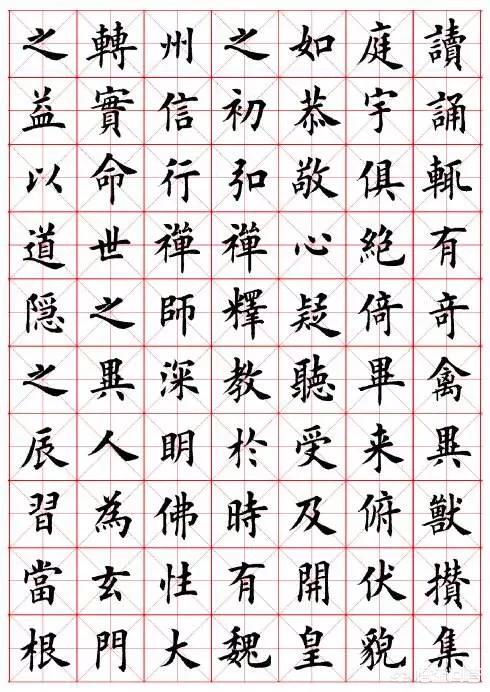 讀誦輒有奇禽異獸攢集
庭宇俱絕倚畢来俯伏貌
如恭敬心疑聽受及開皇
之初弘禪釋教於時有魏
州信行禪師深明佛性大
轉實命世之異人為玄門
之益以道隐之辰習當根